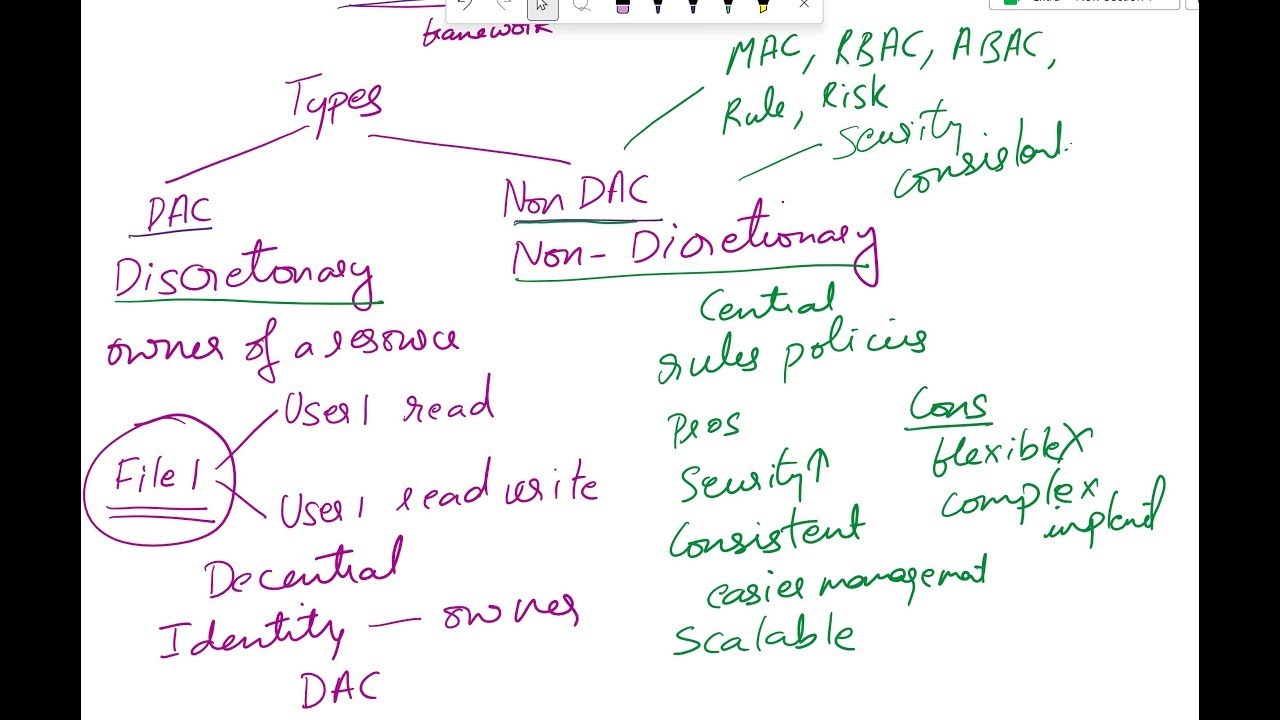 framework
Types
MAC, RBAC, ABAC,
Rule, Risk
Scurity
consistent.
DAC
Non DAC
Discretonary
Non- Dicretionary
owner of a resource
Central
rules policies
File 1
User 1 read
User 1 read write
Decentral
Identity — owner
DAC
Pros
Security↑
Consistent
easier managemat
Scalable
Cons
flexible X
complex